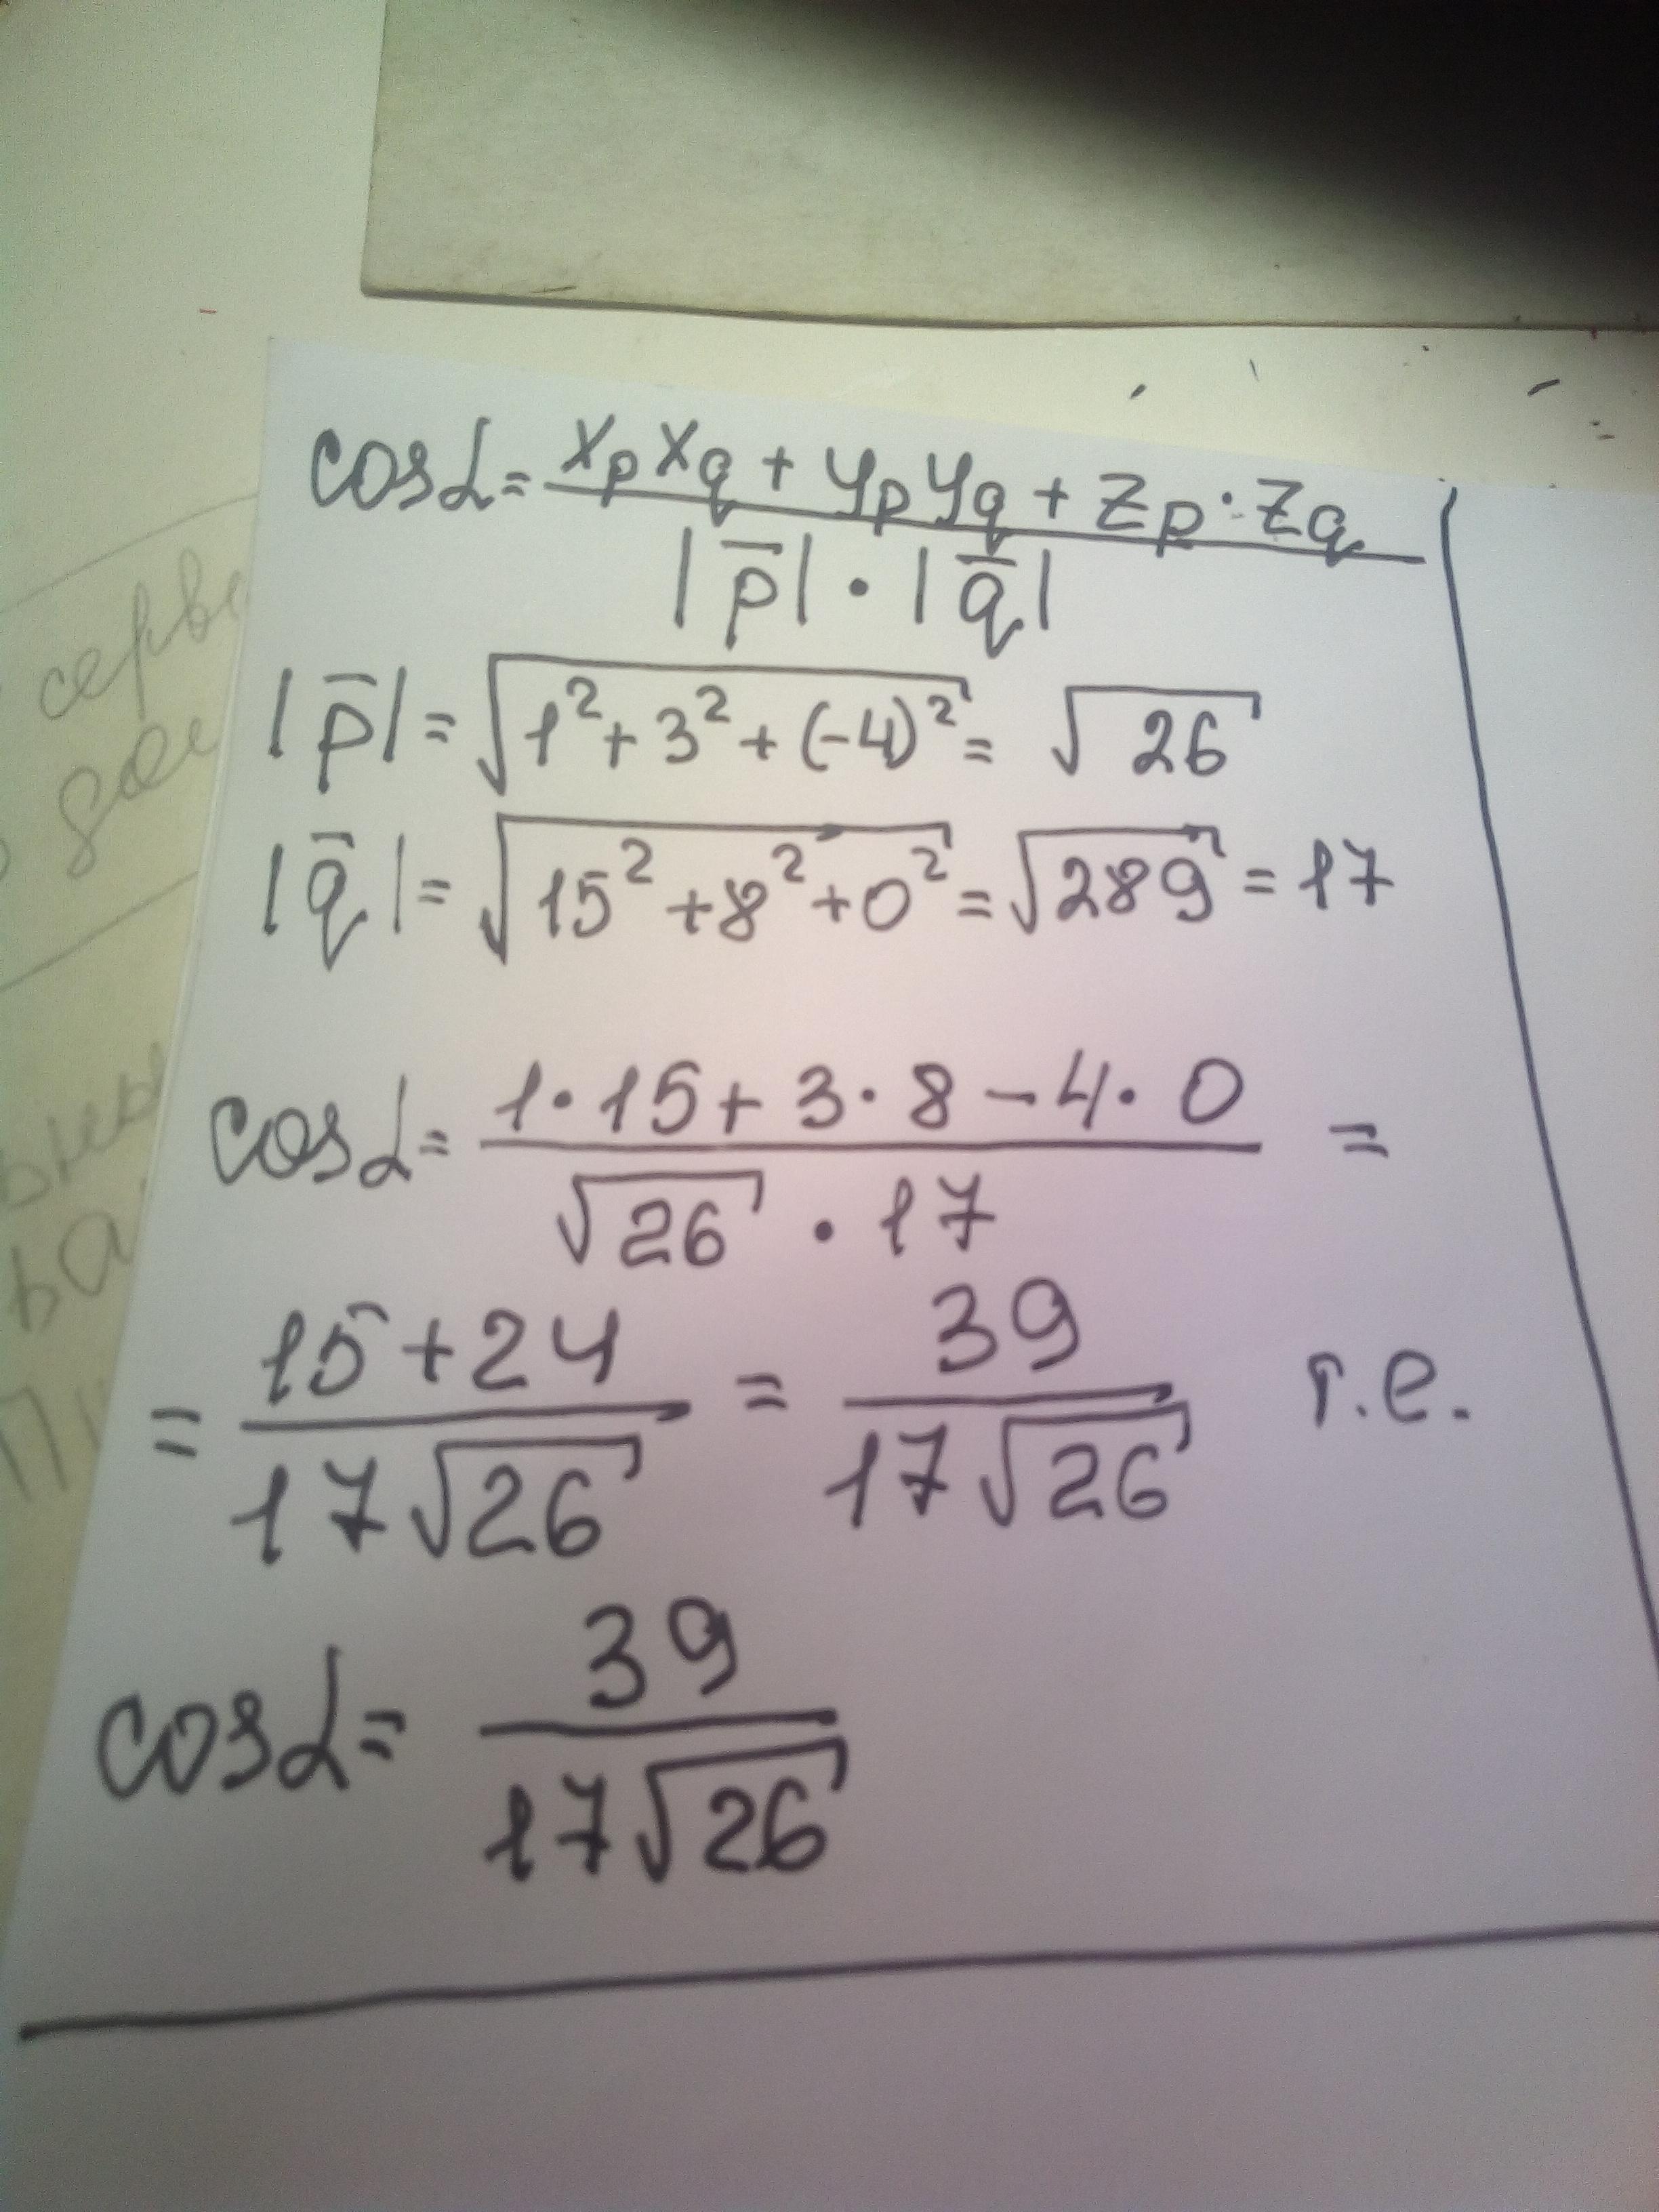 cosα = (x_p x_q + y_p y_q + z_p · z_q) / (|p̅| · |q̅|)
|p̅| = √(1² + 3² + (-4)²) = √26
|q̅| = √(15² + 8² + 0²) = √289 = 17
cosα = (1·15 + 3·8 - 4·0) / (√26 · 17) =
= (15 + 24) / (17√26) = 39 / (17√26) т.е.
cosα = 39 / (17√26)